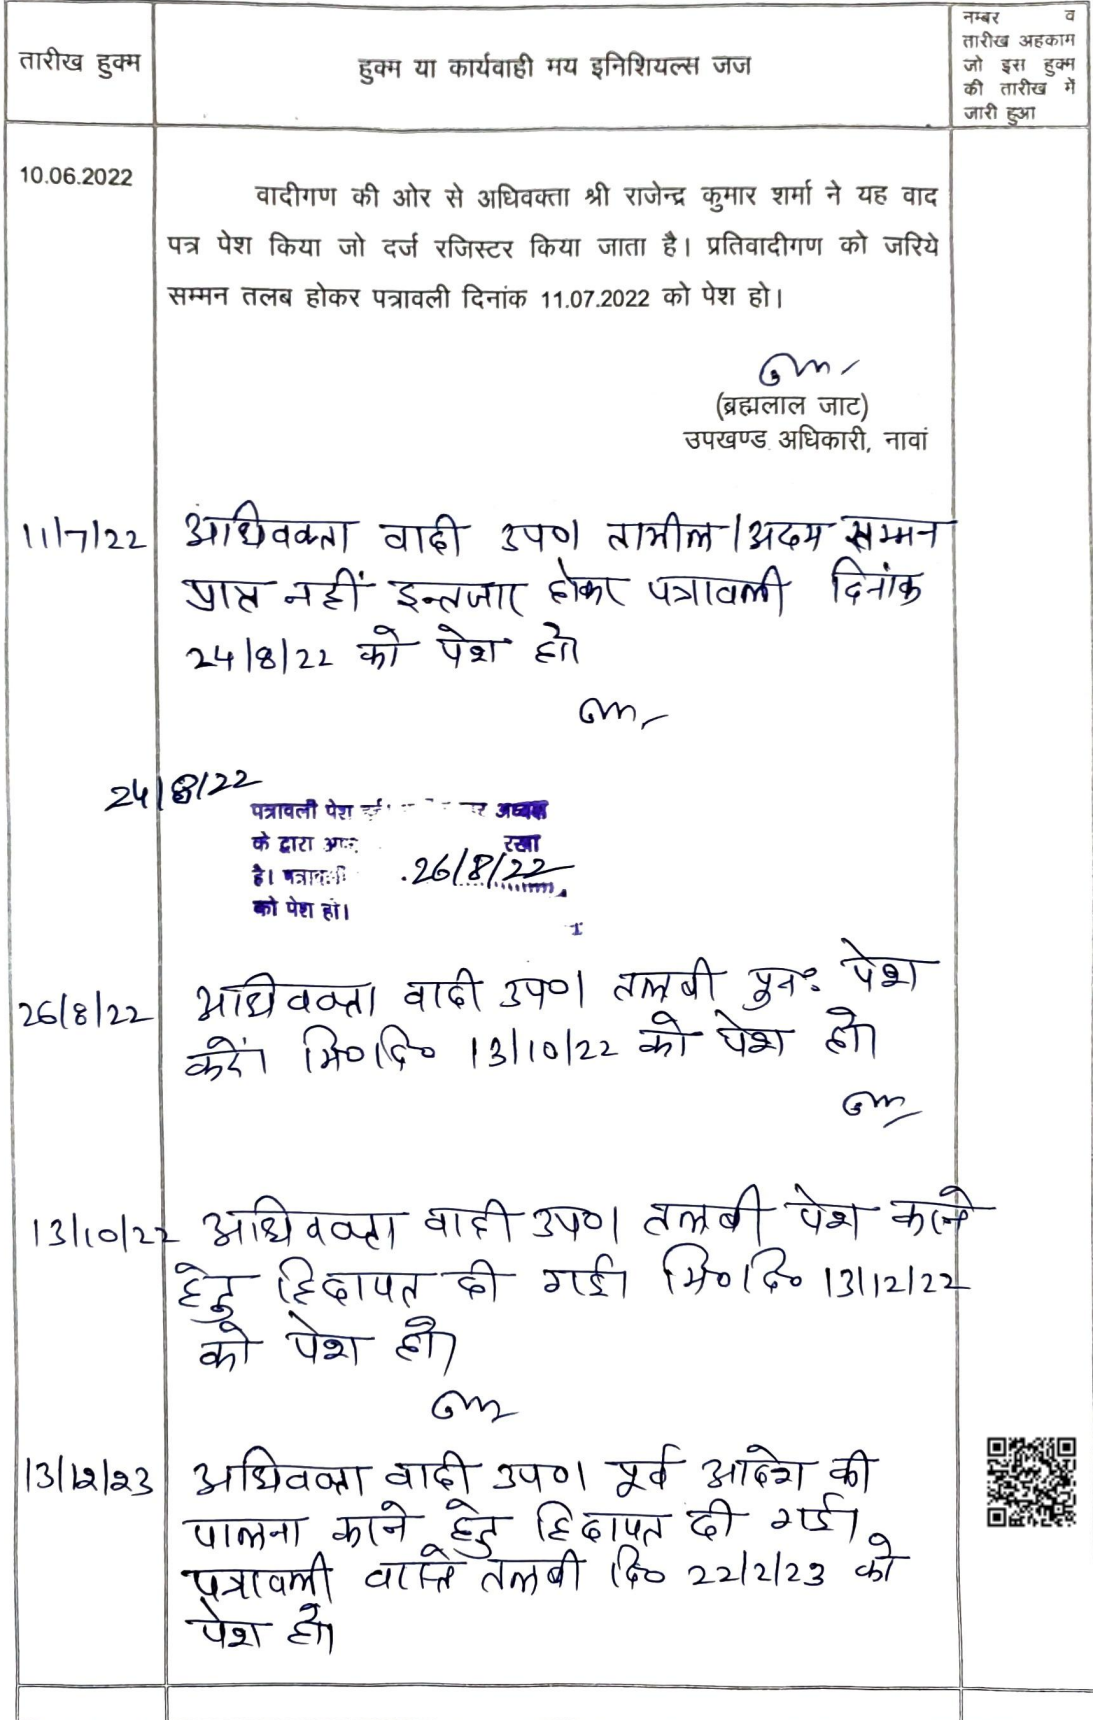 तारीख हुक्म
हुक्म या कार्यवाही मय इनिशियल्स जज
नम्बर व
तारीख अहकाम
जो इस हुक्म
की तारीख में
जारी हुआ
10.06.2022
वादीगण की ओर से अधिवक्ता श्री राजेन्द्र कुमार शर्मा ने यह वाद
पत्र पेश किया जो दर्ज रजिस्टर किया जाता है। प्रतिवादीगण को जरिये
सम्मन तलब होकर पत्रावली दिनांक 11.07.2022 को पेश हो।
(ब्रह्मलाल जाट)
उपखण्ड अधिकारी, नावां
11/7/22 अधिवक्ता वादी उप०। तामील/अदम सम्मन
प्राप्त नहीं इन्तजार होकर पत्रावली दिनांक
24/8/22 को पेश हो।
24/8/22
पत्रावली पेश अध्यक्ष
के द्वारा रखा
है। पत्रावली 26/8/22
को पेश हो।
26/8/22 अधिवक्ता वादी उप०। तलबी पुनः पेश
करें। मि०दि० 13/10/22 को पेश हो।
13/10/22 अधिवक्ता वादी उप०। तलबी पेश करने
हेतु हिदायत दी गई। मि०दि० 13/12/22
को पेश हो।
13/12/23 अधिवक्ता वादी उप०। पूर्व आदेश की
पालना करने हेतु हिदायत दी गई।
पत्रावली वास्ते तलबी दि० 22/2/23 को
पेश हो।